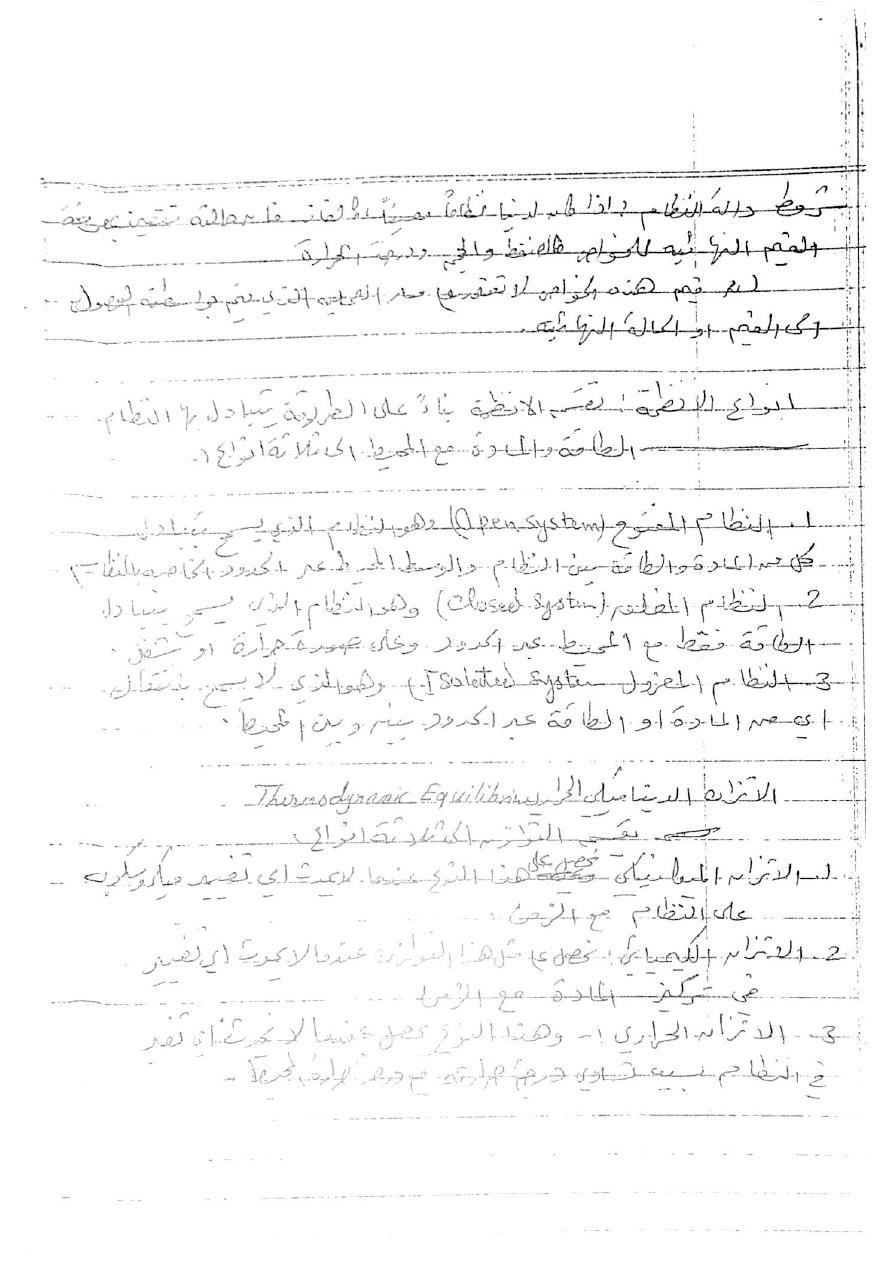 شروط دالة النظام : اذا كان لدينا نظاماً معيناً فان حالته تتعين بمعرفة
القيم النهائيه للخواص كالضغط والحجم ودرجة الحرارة
قيم هذه الخواص لا تعتمد على مسار العمليه الذي يتم بواسطته الوصول
الى القيم او الحالة النهائيه .
انواع الانظمة : تقسم الانظمة بناءً على الطريقة يتبادل بها النظام
الطاقة والمادة مع المحيط الى ثلاثة انواع :-
1. النظام المفتوح (Open System) وهو النظام الذي يسمح بتبادل
كل من المادة والطاقة بين النظام والوسط المحيط عبر الحدود الخاصه بالنظام
2. النظام المغلق (Closed System) وهو النظام الذي يسمح بتبادل
الطاقة فقط مع المحيط عبر الحدود وعلى صورة حرارة او شغل .
3. النظام المعزول (Isoleted System) وهو الذي لا يسمح بانتقال
اي من المادة او الطاقة عبر الحدود بينه وبين المحيط .
الاتزان الديناميكي الحراري Thermodynamic Equilibrium
يقسم التوازن الى ثلاثة انواع :
1. الاتزان الميكانيكي نحصل على هذا النوع عندما لا يحدث اي تغيير ميكروسكوبي
على النظام مع الزمن .
2. الاتزان الكيميائي : نحصل على مثل هذا التوازن عندما لا يحدث اي تغيير
في تركيز المادة مع الزمن
3. الاتزان الحراري :- وهذا النوع يحصل عندما لا يحدث اي تغير
في النظام بسبب تساوي درجة حرارته مع درجة حرارة المحيط .